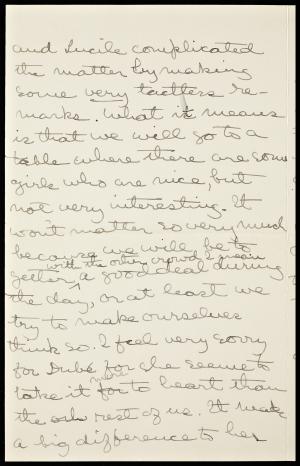 and Lucile complicated
the matter by making
some very tactless re-
marks. What it means
is that we will go to a
table where there are some
girls who are nice, but
not very interesting. It
won't matter so very much
because we will be to-
with the other crowd I mean
gether, a good deal during
the day, or at least we
try to make ourselves
think so. I feel very sorry
for Dubé, for she seems to
more
take it for to heart than
the other rest of us. It makes
a big difference to her